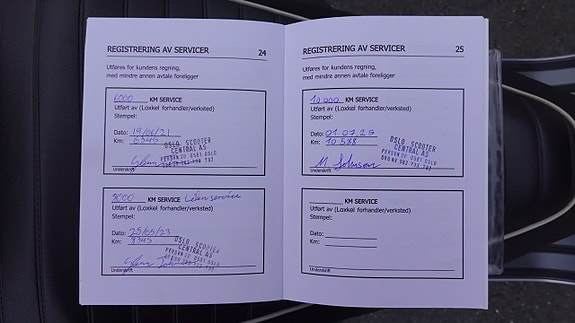 REGISTRERING AV SERVICER 24
Utføres for kundens regning,
med mindre annen avtale foreligger
6000 KM SERVICE
Utført av (Loxkel forhandler/verksted)
Stempel:
Dato: 19/06/21
Km: 6345
OSLO SCOOTER
CENTRAL AS
Underskrift
8000 KM SERVICE Liten service
Utført av (Loxkel forhandler/verksted)
Stempel:
Dato: 25/05/23
Km: 8345
OSLO SCOOTER
CENTRAL AS
Underskrift
REGISTRERING AV SERVICER 25
Utføres for kundens regning,
med mindre annen avtale foreligger
10 000 KM SERVICE
Utført av (Loxkel forhandler/verksted)
Stempel:
Dato: 01.07.25
Km: 10 588
OSLO SCOOTER
CENTRAL AS
Underskrift
KM SERVICE
Utført av (Loxkel forhandler/verksted)
Stempel:
Dato:
Km:
Underskrift